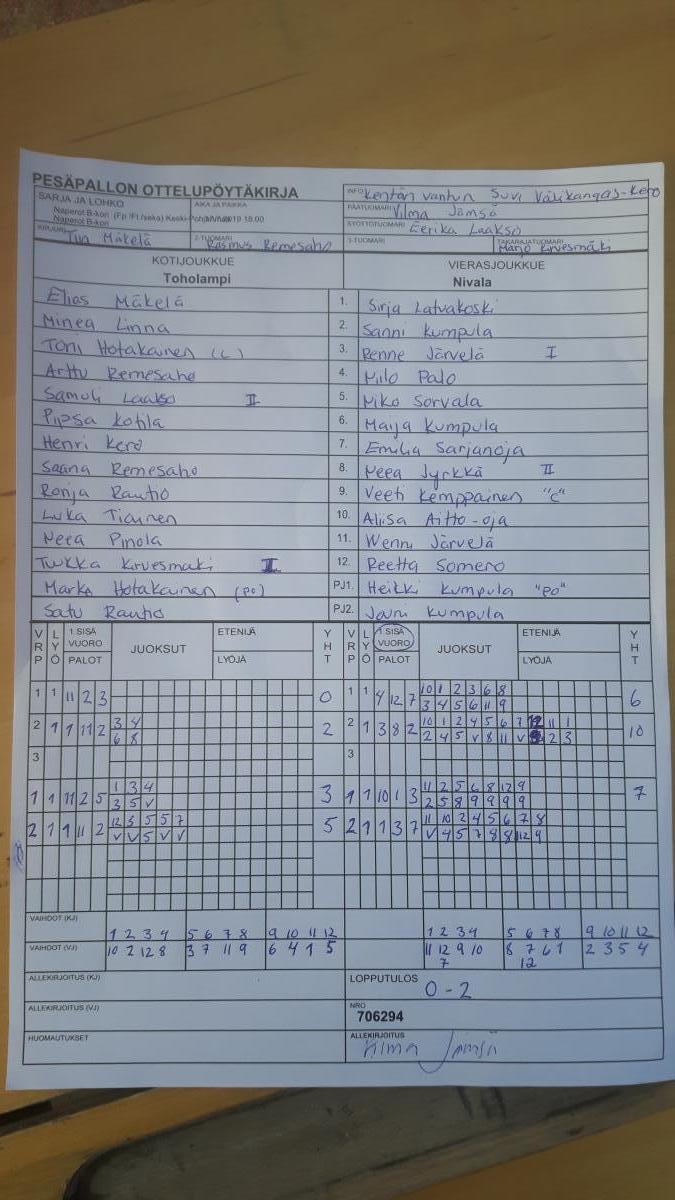 PESÄPALLON OTTELUPÖYTÄKIRJA
INFO Kentän vantun Suvi Välikangas-Kero
SARJA JA LOHKO
Naperot B-kori
AIKA JA PAIKKA
2019 18.00
PÄÄTUOMARI Vilma Jämsä
SYÖTTÖTUOMARI Eerika Laakso
KIRJURI Tiin Mäkelä
2-TUOMARI Rasmus Remesaho
3-TUOMARI
TAKARAJATUOMARI Marjo Kirvesmäki
KOTIJOUKKUE
Toholampi
VIERASJOUKKUE
Nivala
Elias Mäkelä 1. Sirja Latvakoski
Minea Linna 2. Sanni Kumpula
Toni Hotakainen (C) 3. Renne Järvelä I
Arttu Remesaho 4. Milo Palo
Samuli Laakso II 5. Niko Sorvala
Pipsa Kotila 6. Maija Kumpula
Henri Kero 7. Emilia Sarjanoja
Saana Remesaho 8. Neea Jyrkkä II
Ronja Rautio 9. Veeti Kemppainen "C"
Luka Tiainen 10. Aliisa Aitto-oja
Neea Pinola 11. Wenni Järvelä
Tuukka Kirvesmäki I 12. Reetta Somero
Marko Hotakainen (PO) PJ1. Heikki Kumpula "PO"
Satu Rautio PJ2. Jouni Kumpula
VRP LYÖ 1.SISÄVUORO PALOT JUOKSUT ETENIJÄ LYÖJÄ YHT VRP LYÖ 1.SISÄVUORO PALOT JUOKSUT ETENIJÄ LYÖJÄ YHT
1 1 11 2 3 0 1 1 4 12 7 10 1 2 3 6 8 6
3 4 5 6 11 9
2 1 1 11 2 3 4 2 2 1 3 8 2 10 1 2 4 5 6 7 12 11 1 10
6 8 2 4 5 V 8 11 V 2 3
3 3
1 1 11 2 5 1 3 4 3 1 1 10 1 3 11 2 5 6 8 12 9 7
3 5 V 2 5 8 9 9 9 9
2 1 1 11 2 12 3 5 5 7 5 2 1 1 3 7 11 10 2 4 5 6 7 8
V V 5 V V V 4 5 7 8 8 12 9
VAIHDOT (KJ) 1 2 3 4 5 6 7 8 9 10 11 12 1 2 3 4 5 6 7 8 9 10 11 12
VAIHDOT (VJ) 10 2 12 8 3 7 11 9 6 4 1 5 11 12 9 10 8 7 6 1 2 3 5 4
7 12
ALLEKIRJOITUS (KJ)
LOPPUTULOS
0 - 2
ALLEKIRJOITUS (VJ)
NRO
706294
HUOMAUTUKSET
ALLEKIRJOITUS
Vilma Jämsä